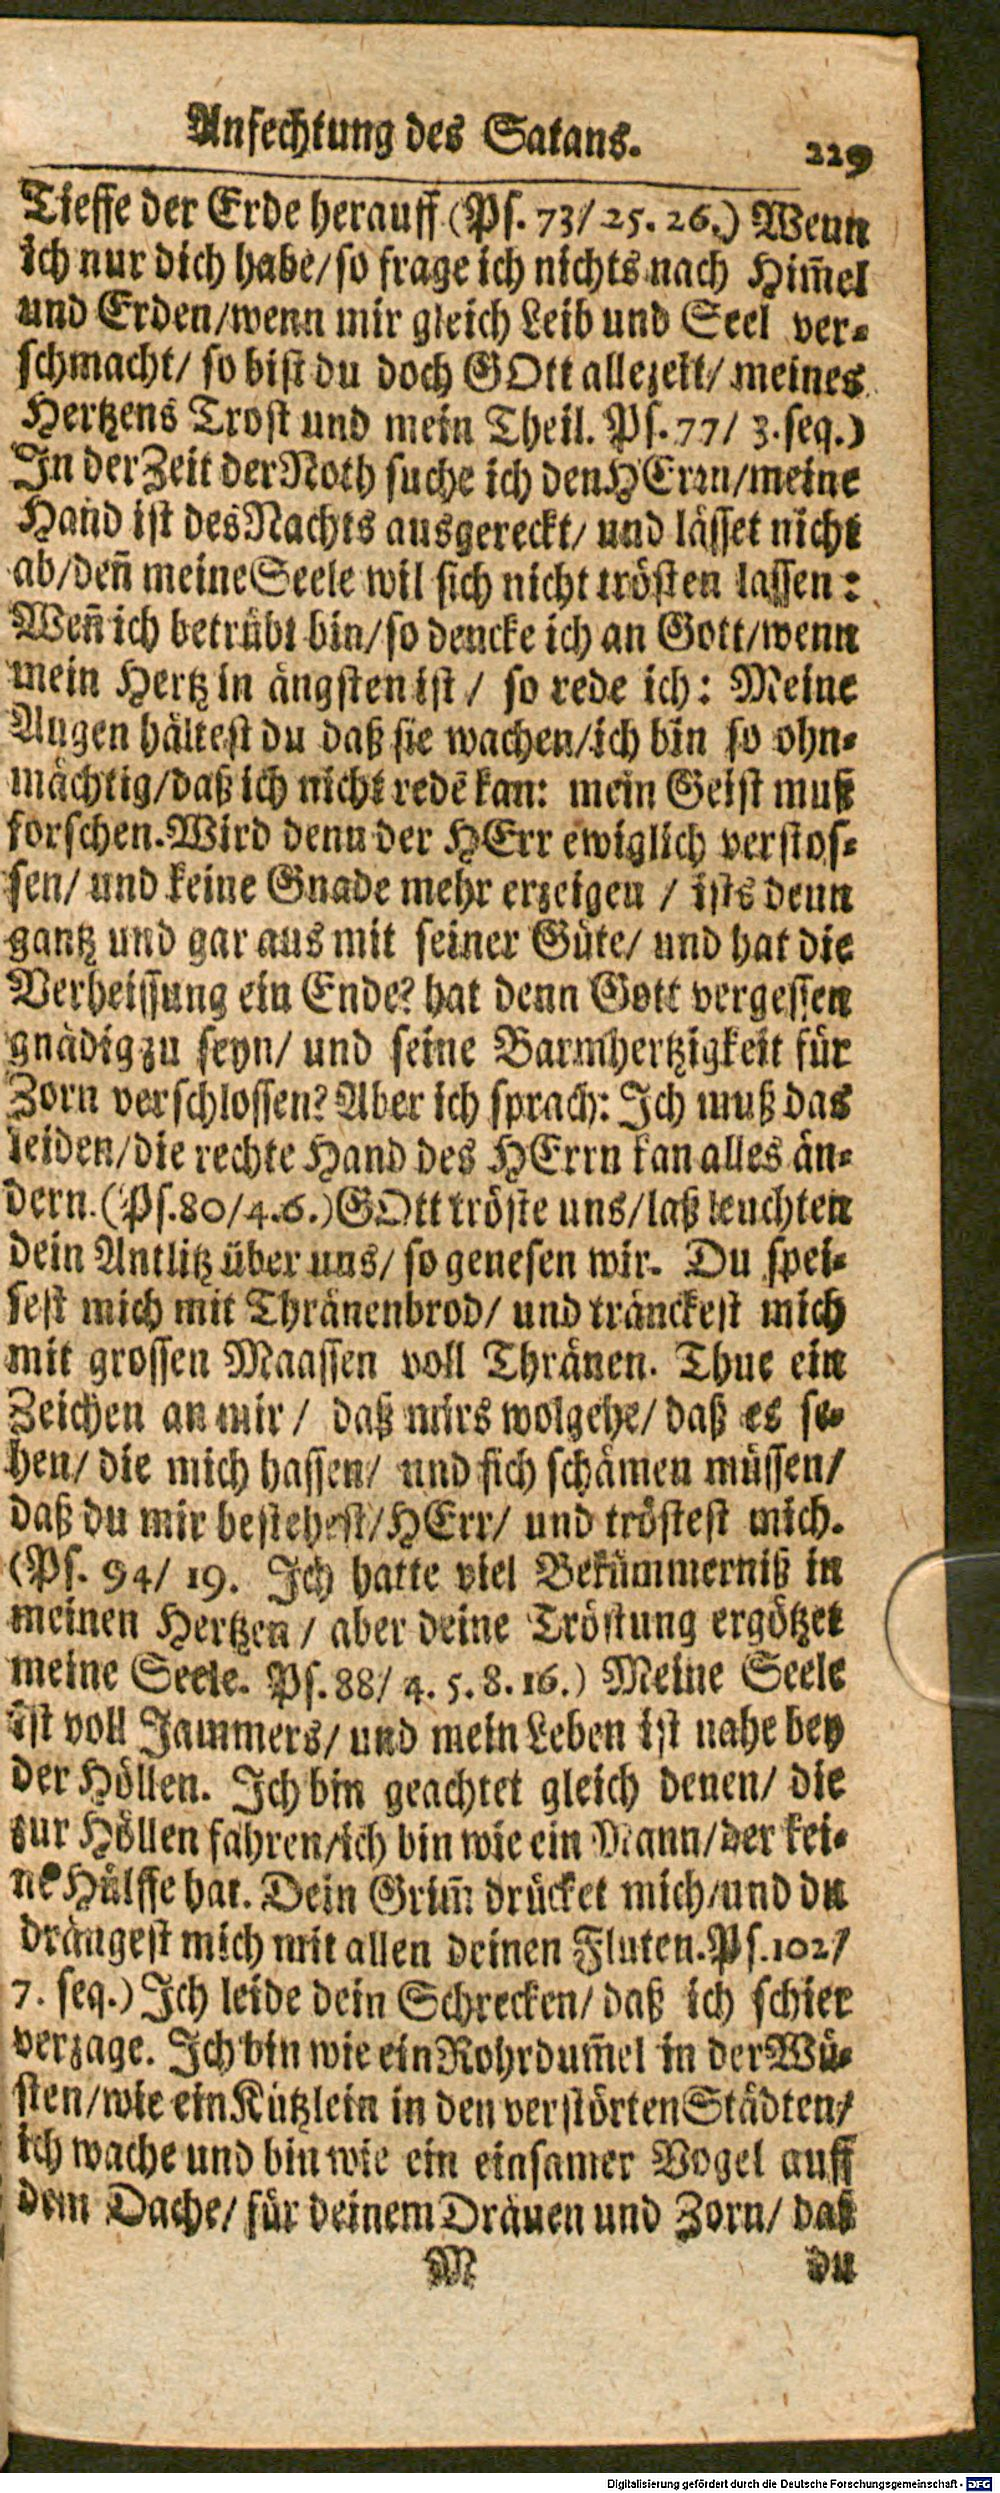 Anfechtung des Satans. 229
Tieffe der Erde herauff (Ps. 73/ 25. 26.) Wenn
ich nur dich habe/ so frage ich nichts nach Him̃el
und Erden/ wenn mir gleich Leib und Seel ver-
schmacht/ so bist du doch GOtt allezeit/ meines
Hertzens Trost und mein Theil. Ps. 77/ 3. seq.)
In der Zeit der Noth suche ich den HErrn/ meine
Hand ist des Nachts ausgereckt/ und lässet nicht
ab/ deñ meine Seele wil sich nicht trösten lassen:
Weñ ich betrübt bin/ so dencke ich an Gott/ wenn
mein Hertz in ängsten ist/ so rede ich: Meine
Augen hältest du daß sie wachen/ ich bin so ohn-
mächtig/ daß ich nicht redē kan: mein Geist muß
forschen. Wird denn der HErr ewiglich verstos-
sen/ und keine Gnade mehr erzeigen / ists denn
gantz und gar aus mit seiner Güte/ und hat die
Verheissung ein Ende? hat denn Gott vergessen
gnädig zu seyn/ und seine Barmhertzigkeit für
Zorn verschlossen? Aber ich sprach: Ich muß das
leiden/ die rechte Hand des HErrn kan alles än-
dern. (Ps. 80/ 4. 6.) GOtt tröste uns/ laß leuchten
dein Antlitz über uns/ so genesen wir. Du spei-
sest mich mit Thränenbrod/ und tränckest mich
mit grossen Maassen voll Thränen. Thue ein
Zeichen an mir/ daß mirs wolgehe/ daß es se-
hen/ die mich hassen/ und sich schämen müssen/
daß du mir bestehest/ HErr/ und tröstest mich.
(Ps. 94/ 19. Ich hatte viel Bekümmerniß in
meinen Hertzen / aber deine Tröstung ergötzet
meine Seele. Ps. 88/ 4. 5. 8. 16.) Meine Seele
ist voll Jammers/ und mein Leben ist nahe bey
der Höllen. Ich bin geachtet gleich denen/ die
zur Höllen fahren/ ich bin wie ein Mann/ der kei-
ne Hülffe hat. Dein Grim̃ drücket mich/ und du
drängest mich mit allen deinen Fluten. Ps. 102/
7. seq.) Ich leide dein Schrecken/ daß ich schier
verzage. Ich bin wie ein Rohrdum̃el in der Wü-
sten/ wie ein Kützlein in den verstörten Städten/
ich wache und bin wie ein einsamer Vogel auff
dem Dache/ für deinem Dräuen und Zorn/ daß
M du
Digitalisierung gefördert durch die Deutsche Forschungsgemeinschaft - DFG